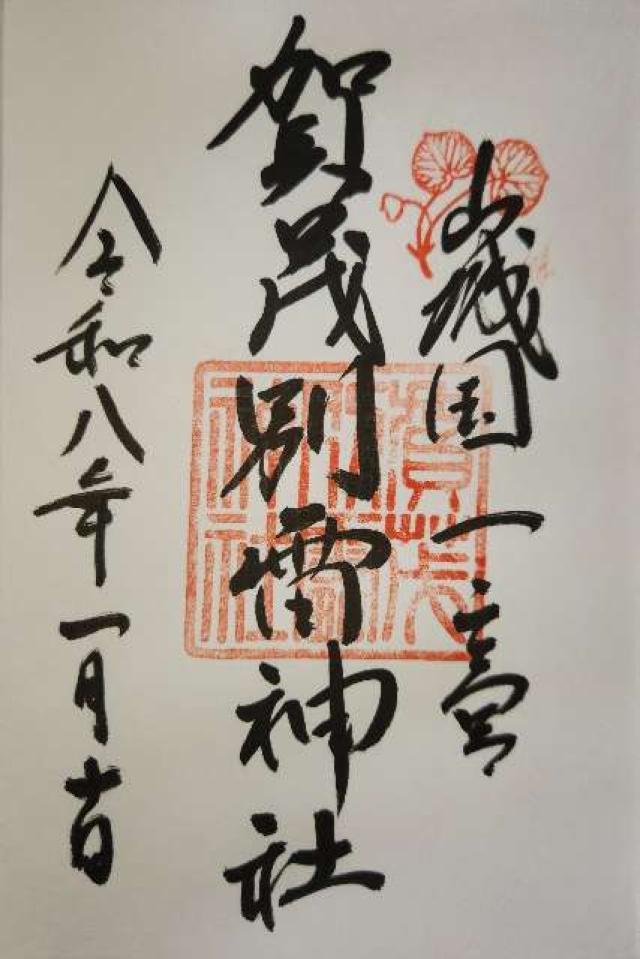 山城国一之宮
賀茂別雷神社
令和八年一月十日
賀茂別雷神社